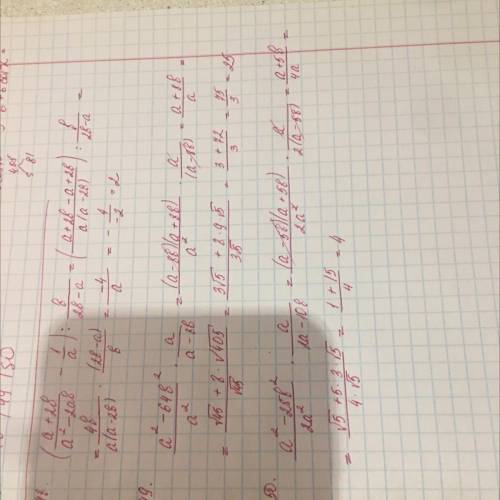 48. ((a+2b)/(a²-2ab) - 1/a) : b/(2b-a) = ((a+2b-a+2b)/(a(a-2b))) : b/(2b-a) =
= 4b/(a(a-2b)) · (2b-a)/b = -4/a = -4/-2 = 2
49. (a²-64b²)/a² · a/(a-8b) = ((a-8b)(a+8b))/a² · a/(a-8b) = (a+8b)/a =
= (√45+8·√405)/√45 = (3√5+8·9√5)/3√5 = (3+72)/3 = 75/3 = 25
50. (a²-25b²)/2a² · a/(2a-10b) = ((a-5b)(a+5b))/2a² · a/(2(a-5b)) = (a+5b)/4a =
= (√5+5·3√5)/(4·√5) = (1+15)/4 = 4